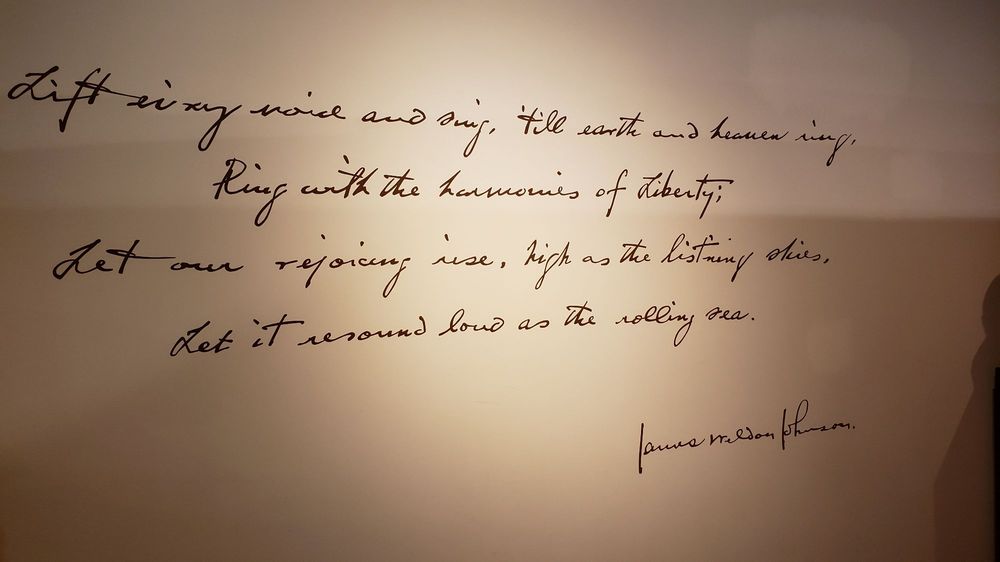 Lift ev'ry voice and sing, 'till earth and heaven ring,
Ring with the harmonies of Liberty;
Let our rejoicing rise, high as the list'ning skies,
Let it resound loud as the rolling sea.
James Weldon Johnson.